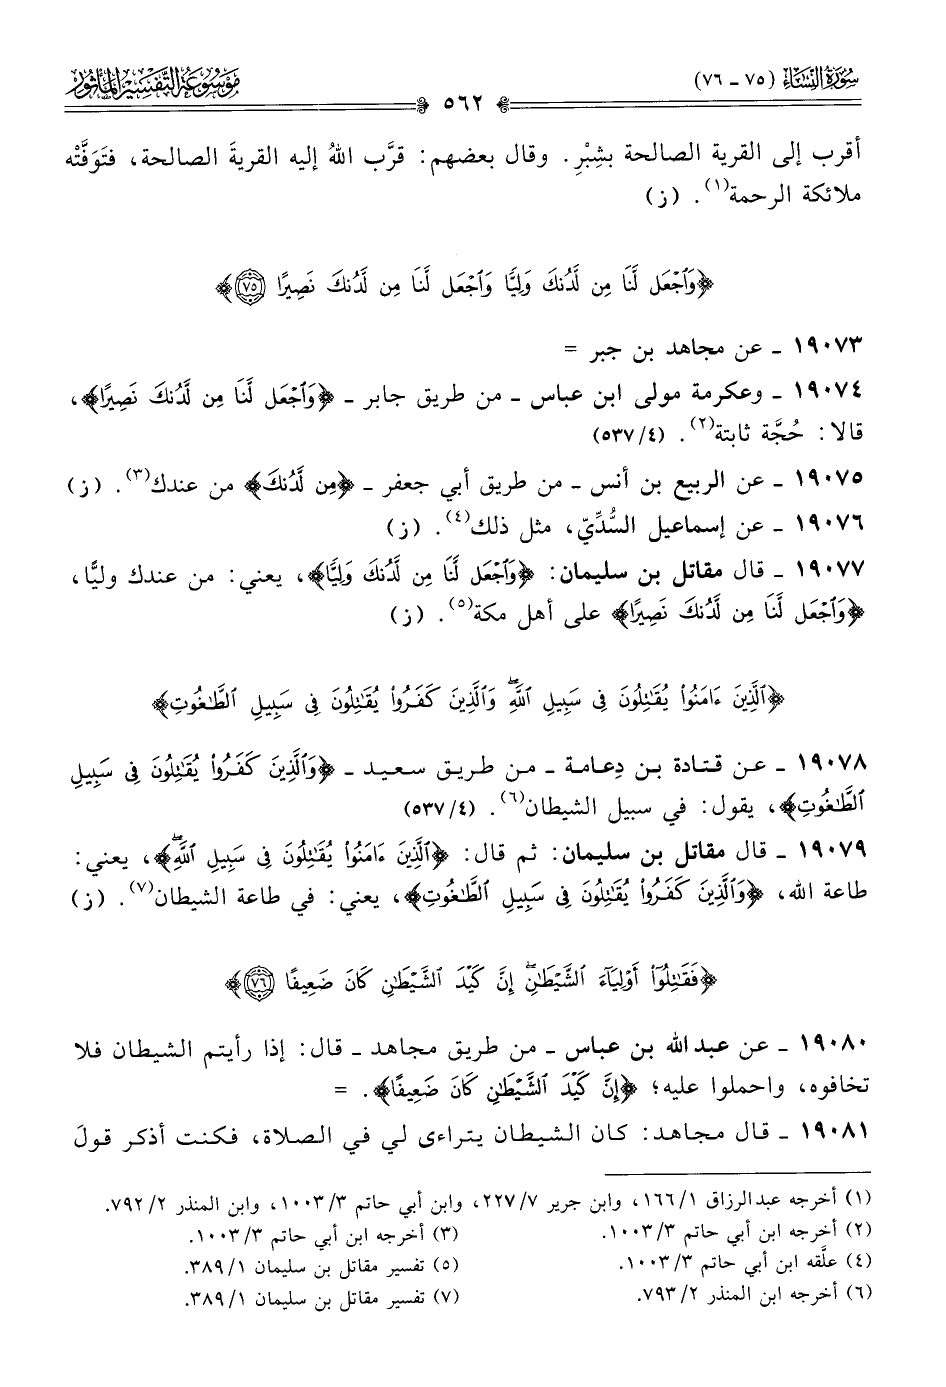 سُورَةُ النِّسَاءِ (٧٥ - ٧٦)
٥٦٢
مَوْسُوعَةُ التَّفْسِيرِ المَأْثُورِ
أقرب إلى القرية الصالحة بشِبْرٍ. وقال بعضهم: قرَّب اللهُ إليه القريةَ الصالحة، فتَوَفَّتْه
ملائكة الرحمة(١). (ز)
﴿وَٱجْعَل لَّنَا مِن لَّدُنكَ وَلِيًّا وَٱجْعَل لَّنَا مِن لَّدُنكَ نَصِيرًا ٧٥﴾
١٩٠٧٣ - عن مجاهد بن جبر =
١٩٠٧٤ - وعكرمة مولى ابن عباس - من طريق جابر - ﴿وَٱجْعَل لَّنَا مِن لَّدُنكَ نَصِيرًا﴾،
قالا: حُجَّة ثابتة(٢). (٥٣٧/٤)
١٩٠٧٥ - عن الربيع بن أنس - من طريق أبي جعفر - ﴿مِن لَّدُنكَ﴾ من عندك(٣). (ز)
١٩٠٧٦ - عن إسماعيل السُّدِّيّ، مثل ذلك(٤). (ز)
١٩٠٧٧ - قال مقاتل بن سليمان: ﴿وَٱجْعَل لَّنَا مِن لَّدُنكَ وَلِيًّا﴾، يعني: من عندك وليًّا،
﴿وَٱجْعَل لَّنَا مِن لَّدُنكَ نَصِيرًا﴾ على أهل مكة(٥). (ز)
﴿ٱلَّذِينَ ءَامَنُوا۟ يُقَٰتِلُونَ فِى سَبِيلِ ٱللَّهِۖ وَٱلَّذِينَ كَفَرُوا۟ يُقَٰتِلُونَ فِى سَبِيلِ ٱلطَّٰغُوتِ﴾
١٩٠٧٨ - عن قتادة بن دِعامة - من طريق سعيد - ﴿وَٱلَّذِينَ كَفَرُوا۟ يُقَٰتِلُونَ فِى سَبِيلِ
ٱلطَّٰغُوتِ﴾، يقول: في سبيل الشيطان(٦). (٥٣٧/٤)
١٩٠٧٩ - قال مقاتل بن سليمان: ثم قال: ﴿ٱلَّذِينَ ءَامَنُوا۟ يُقَٰتِلُونَ فِى سَبِيلِ ٱللَّهِۖ﴾، يعني:
طاعة الله، ﴿وَٱلَّذِينَ كَفَرُوا۟ يُقَٰتِلُونَ فِى سَبِيلِ ٱلطَّٰغُوتِ﴾، يعني: في طاعة الشيطان(٧). (ز)
﴿فَقَٰتِلُوٓا۟ أَوْلِيَآءَ ٱلشَّيْطَٰنِۖ إِنَّ كَيْدَ ٱلشَّيْطَٰنِ كَانَ ضَعِيفًا ٧٦﴾
١٩٠٨٠ - عن عبد الله بن عباس - من طريق مجاهد - قال: إذا رأيتم الشيطان فلا
تخافوه، واحملوا عليه؛ ﴿إِنَّ كَيْدَ ٱلشَّيْطَٰنِ كَانَ ضَعِيفًا﴾. =
١٩٠٨١ - قال مجاهد: كان الشيطان يتراءى لي في الصلاة، فكنت أذكر قولَ
(١) أخرجه عبدالرزاق ١/ ١٦٦، وابن جرير ٧/ ٢٢٧، وابن أبي حاتم ٣/ ١٠٠٣، وابن المنذر ٢/ ٧٩٢.
(٢) أخرجه ابن أبي حاتم ٣/ ١٠٠٣. (٣) أخرجه ابن أبي حاتم ٣/ ١٠٠٣.
(٤) علَّقه ابن أبي حاتم ٣/ ١٠٠٣. (٥) تفسير مقاتل بن سليمان ١/ ٣٨٩.
(٦) أخرجه ابن المنذر ٢/ ٧٩٣. (٧) تفسير مقاتل بن سليمان ١/ ٣٨٩.